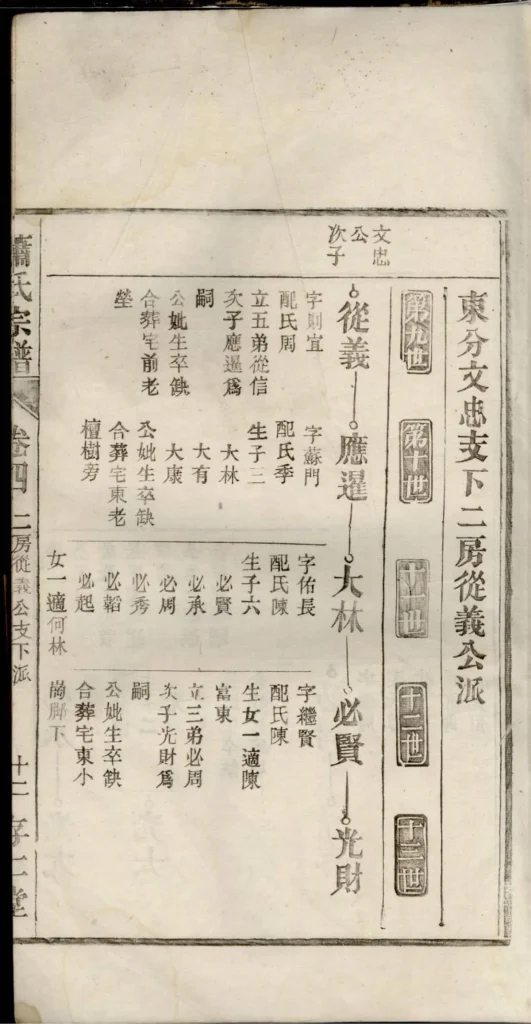 東分文忠支下二房從義公派
第九世
第十世
十一世
十二世
十三世
文忠
公
次子
從義
應暹
大林
必賢
光財
字則宜
配氏周
立五弟從信
次子應暹爲
嗣
公妣生卒缺
合葬宅前老
塋
字蘇門
配氏季
生子三
大林
大有
大康
公妣生卒缺
合葬宅東老
檀樹旁
字佑長
配氏陳
生子六
必賢
必承
必周
必秀
必韜
必起
女一適何林
字繼賢
配氏陳
生女一適陳
富東
立三弟必周
次子光財爲
嗣
公妣生卒缺
合葬宅東小
崗脚下
蕭氏宗譜
卷四
二房從義公支下派
十二
存仁堂